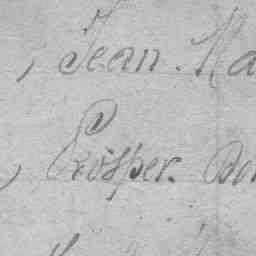 , Jean. Ma
, Prosper. Bon